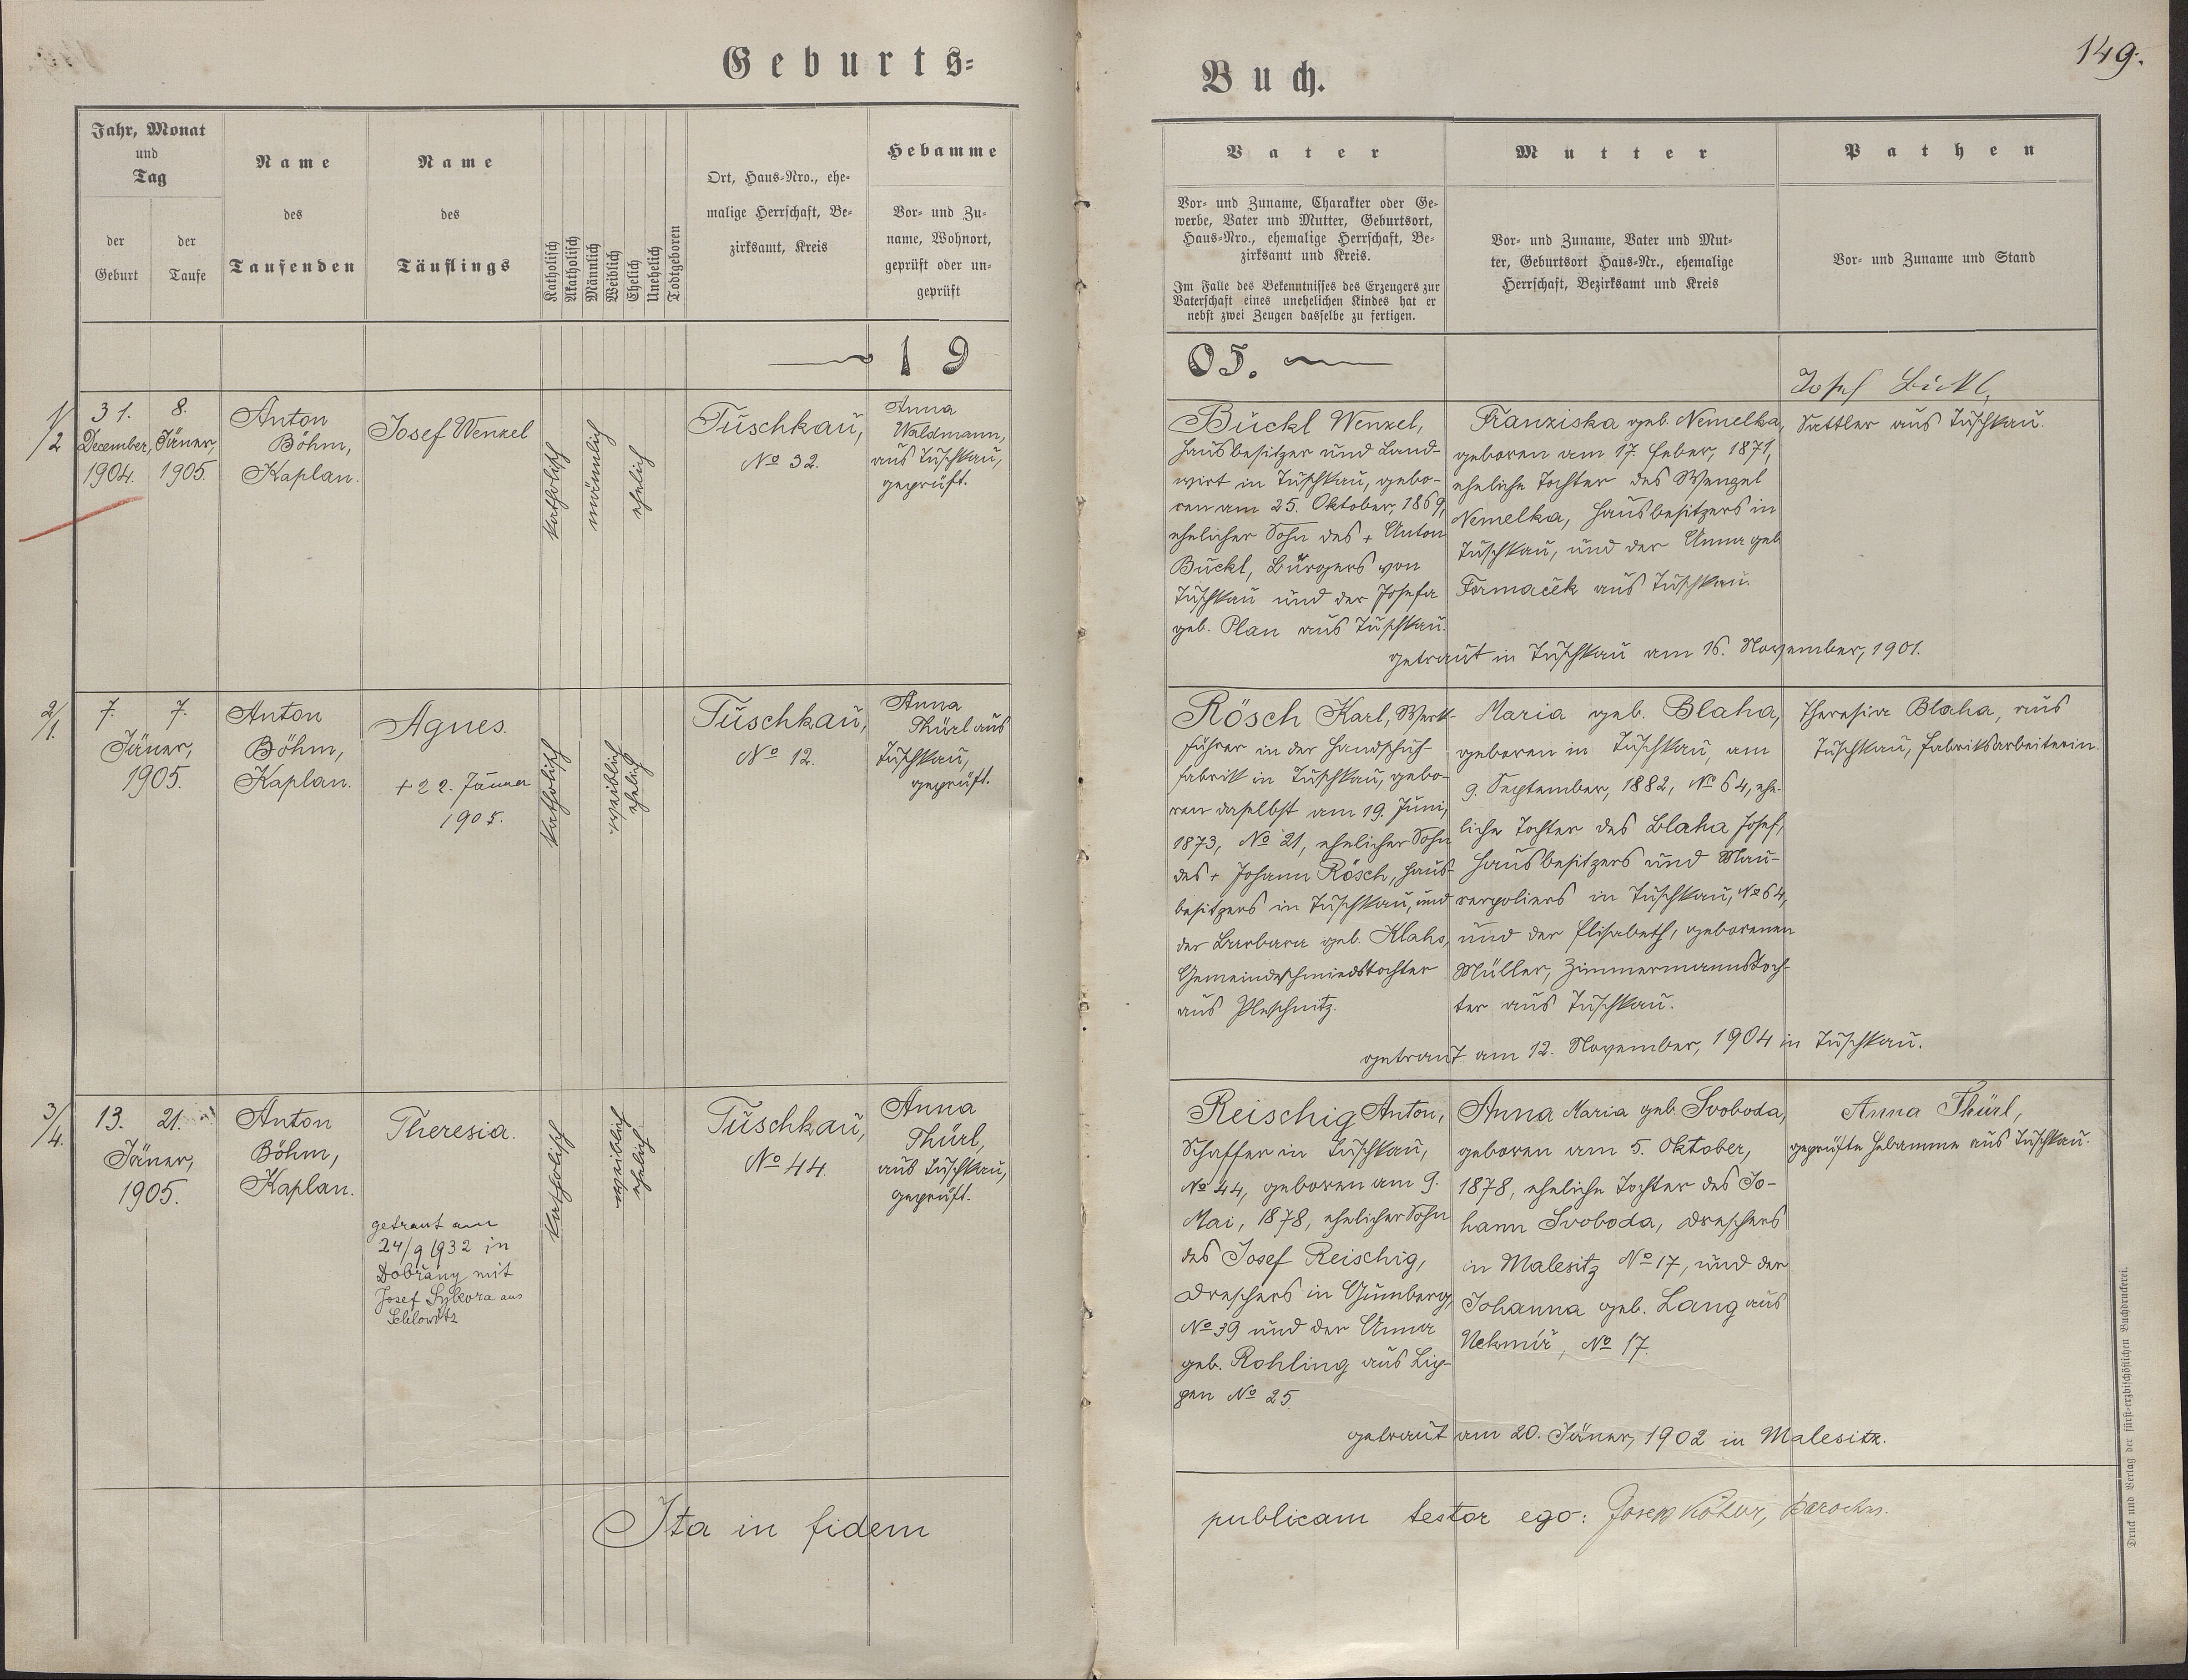 Geburts=
Buch.
149.
Jahr, Monat
und
Tag
der
Geburt
der
Taufe
Name
des
Taufenden
Name
des
Täuflings
Katholisch
Akatholisch
Männlich
Weiblich
Ehelich
Unehelich
Todtgeboren
Ort, Haus=Nro., ehe=
malige Herrschaft, Be=
zirksamt, Kreis
Hebamme
Vor= und Zu=
name, Wohnort,
geprüft oder un=
geprüft
Vater
Vor= und Zuname, Charakter oder Ge=
werbe, Vater und Mutter, Geburtsort,
Haus=Nro., ehemalige Herrschaft, Be=
zirksamt und Kreis.
Im Falle des Bekenntnisses des Erzeugers zur
Vaterschaft eines unehelichen Kindes hat er
nebst zwei Zeugen dasselbe zu fertigen.
Mutter
Vor= und Zuname, Vater und Mut=
ter, Geburtsort Haus=Nr., ehemalige
Herrschaft, Bezirksamt und Kreis
Pathen
Vor= und Zuname und Stand
19
05.
1/2
31. 8.
December, Jäner,
1904. 1905.
Anton
Böhm,
Kaplan.
Josef Wenzel
katholisch
männlich
ehelich
Tuschkau,
No 32.
Anna
Waldmann,
aus Tuschkau,
geprüft.
Bückl Wenzel,
Hausbesitzer und Land-
wirt in Tuschkau, gebo-
ren am 25. Oktober, 1869,
ehelicher Sohn des + Anton
Bückl, Bürgers von
Tuschkau und der Josefa
geb. Plan aus Tuschkau.
Franziska geb. Nemelka,
geboren am 17. Feber, 1871,
eheliche Tochter des Wenzel
Nemelka, Hausbesitzers in
Tuschkau, und der Anna geb
Formaček aus Tuschkau.
Josef Bückl,
Sattler aus Tuschkau.
getraut in Tuschkau am 16. November, 1901.
2/1.
7. 7.
Jäner,
1905.
Anton
Böhm,
Kaplan.
Agnes.
+ 22. Jänner
1905.
katholisch
weiblich
ehelich
Tuschkau,
No 12.
Anna
Thürl aus
Tuschkau,
geprüft.
Rösch Karl, Werk-
führer in der Handschuh-
fabrik in Tuschkau, gebo-
ren daselbst am 19. Juni,
1873, No 21, ehelicher Sohn
des + Johann Rösch, Haus-
besitzers in Tuschkau, und
der Barbara geb. Klahs,
Gemeindeschmiedstochter
aus Pleschnitz.
Maria geb. Blaha,
geboren in Tuschkau, am
9. September, 1882, No 64, ehe-
liche Tochter des Blaha Josef,
Hausbesitzers und Mau-
rerpoliers in Tuschkau, No 64,
und der Elisabeth, geborenen
Müller, Zimmermannstoch-
ter aus Tuschkau.
Theresia Blaha, aus
Tuschkau, Fabriksarbeiterin.
getraut am 12. November, 1904 in Tuschkau.
3/4.
13. 21.
Jäner,
1905.
Anton
Böhm,
Kaplan.
Theresia.
getraut am
24/9 1932 in
Dobřany mit
Josef Sykora aus
katholisch
weiblich
ehelich
Tuschkau,
No 44.
Anna
Thürl,
aus Tuschkau,
geprüft.
Reischig Anton,
Schaffer in Tuschkau,
No 44, geboren am 9.
Mai, 1878, ehelicher Sohn
des Josef Reischig,
Dreschers in Gumberg,
No 39 und der Anna
geb. Rohling aus Lip-
pen No 25.
Anna Maria geb. Svoboda,
geboren am 5. Oktober,
1878, eheliche Tochter des Jo-
hann Svoboda, Dreschers
in Malesitz No 17, und der
Johanna geb. Lang aus
Nekmíř, No 17.
Anna Thürl,
geprüfte Hebamme aus Tuschkau.
getraut am 20. Jäner, 1902 in Malesitz.
Ita in fidem
publicam testor ego: Josef Köhler, Parochus.
Druck und Verlag der fürst=erzbischöflichen Buchdruckerei.